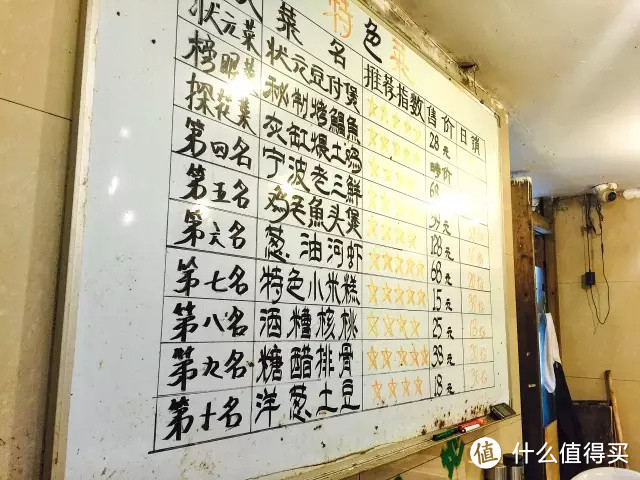 特色菜
菜名 推荐指数 售价 日销
状元菜 状元豆付煲 28元
榜眼菜 秘制烤鳗鱼 时价
探花菜 灰缸煨土鸡 68
第四名 宁波老三鲜
第五名 鱼头煲 128元
第六名 葱油河虾 68元
第七名 特色小米糕 15元
第八名 酒糟核桃 25元
第九名 糖醋排骨 38元
第十名 洋葱土豆 18元
值 什么值得买